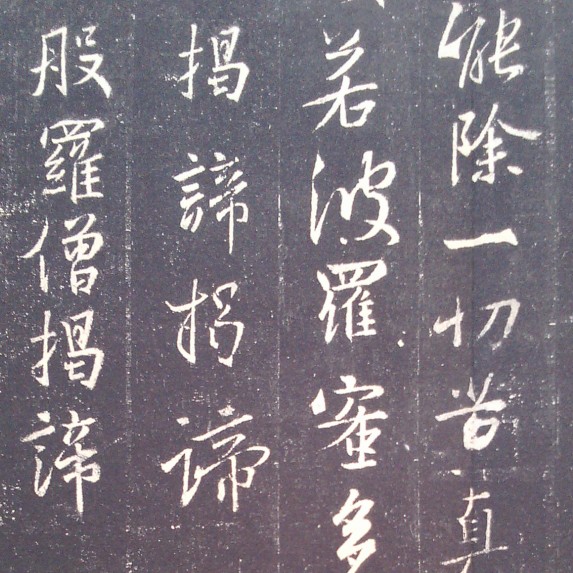 能除一切苦真
若波羅蜜多
揭諦揭諦
般羅僧揭諦